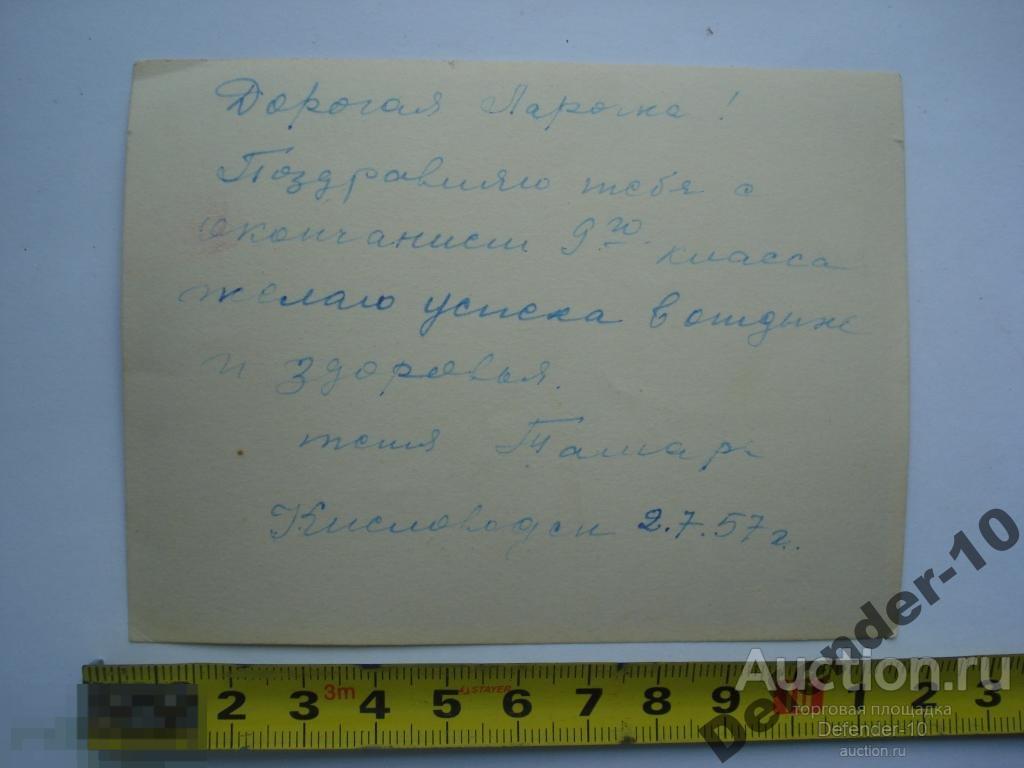 Дорогая Ларочка!
Поздравляю тебя с
окончанием 9го класса
желаю успеха в отдыхе
и здоровья.
тетя Тамара
Кисловодск 2.7.57 г.
2 3m 3 4 5 STAYER 6 7 8 9 1 2 3
Auction.ru
торговая площадка
Defender-10
auction.ru
Defender-10